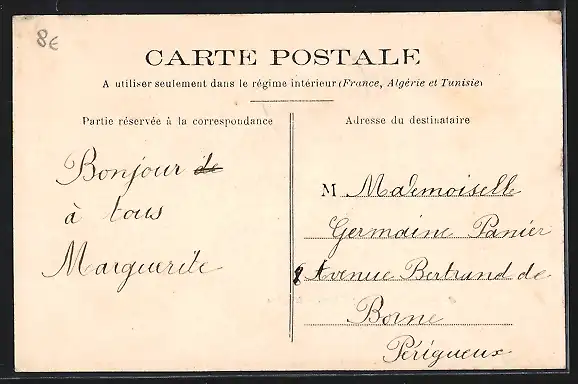 8€
CARTE POSTALE
A utiliser seulement dans le régime intérieur (France, Algérie et Tunisie)
Partie réservée à la correspondance
Bonjour de
à tous
Marguerite
Adresse du destinataire
M Mademoiselle
Germaine Panier
8 Avenue Bertrand de
Borne
Périgueux